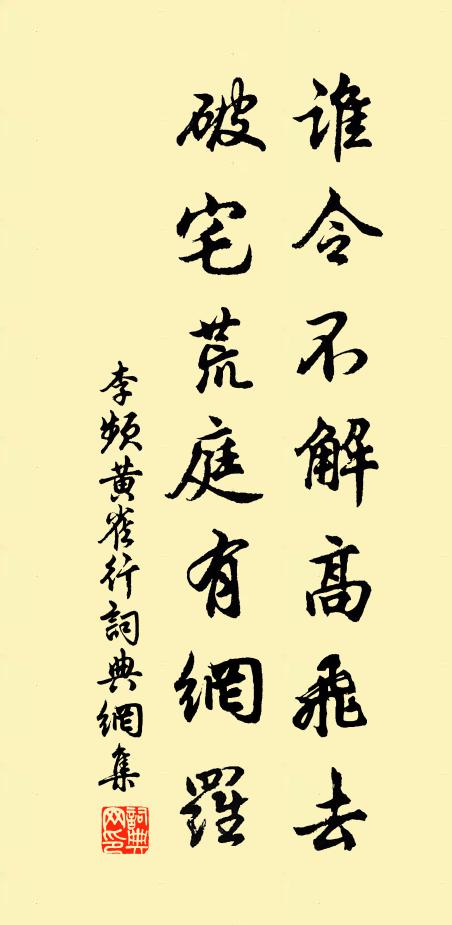 誰令不解高飛去
破宅荒庭有網羅
李頻黃雀行詞典網集
詞典網印